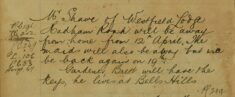 Mr Shave of Westfield Lodge
Hadham Road will be away
from home from 12th April, The
maids will also be away but will
be back again on 19th.
Gardener Brett will have the
keys, he lives at Bells Hill.